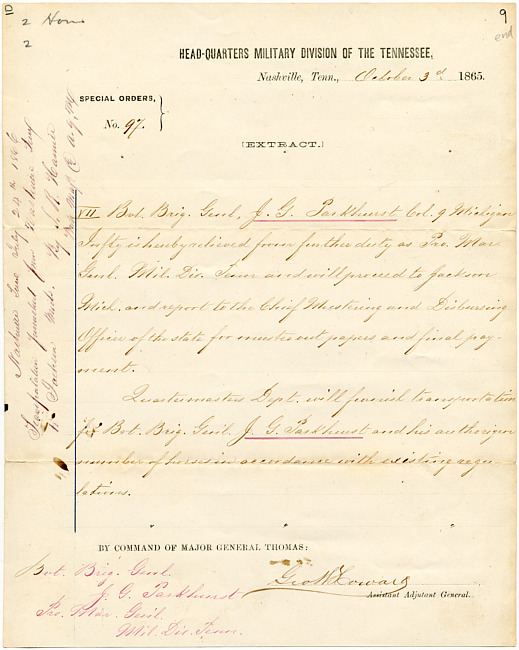 10
2 Hous
2
9
end
HEAD-QUARTERS MILITARY DIVISION OF THE TENNESSEE,
Nashville, Tenn., October 3d. 1865.
SPECIAL ORDERS,
No. 97.
[EXTRACT.]
VII Bvt. Brig. Genl. J. G. Parkhurst Col. 9 Michigan
Infty is hereby relieved from further duty as Pro. Mar
Genl. Mil. Div. Tenn and will proceed to Jackson
Mich. and report to the Chief Mustering and Disbursing
Officer of the state for muster out papers and final pay-
ment.
Quartermasters Dept. will furnish transportation
for Bvt. Brig. Genl. J. G. Parkhurst and his authorized
number of horses in accordance with existing regu-
lations.
BY COMMAND OF MAJOR GENERAL THOMAS:
Geo W Howard
Assistant Adjutant General.
Bvt. Brig. Genl.
J. G. Parkhurst
Pro. Mar. Genl.
Mil. Div. Tenn.
Nashville Tenn 24th 1866
Transportation furnished from Nashville Tenn
to Jackson Mich. By